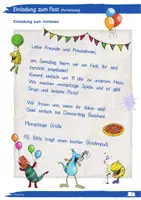 Einladung zum Fest (Fortsetzung)
Einladung zum Vorlesen
Liebe Freunde und Freundinnen,
am Samstag feiern wir ein Fest. Ihr seid
herzlich eingeladen!
Kommt einfach um 11 Uhr zu unserem Haus.
Wir machen monstermäßige Spiele und es gibt
Sirup und leckere Pizza!
Wir freuen uns, wenn ihr dabei seid!
Gebt einfach bis Donnerstag Bescheid.
Monstermäßige Grüße
PS: Bitte tragt einen bunten